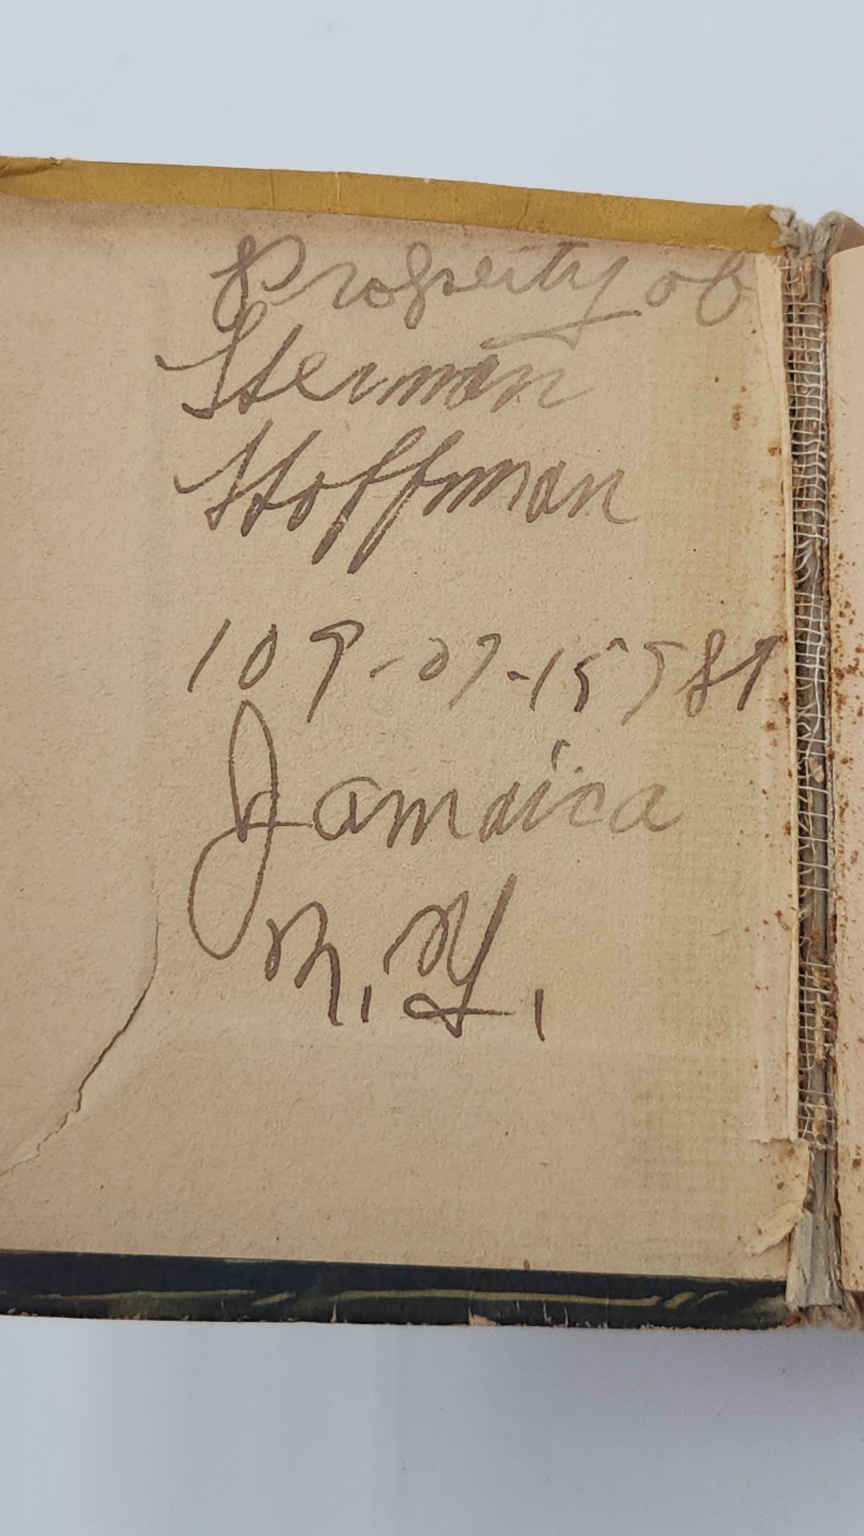 Property of
Herman
Hoffman
109-07-155 St
Jamaica
N.Y.